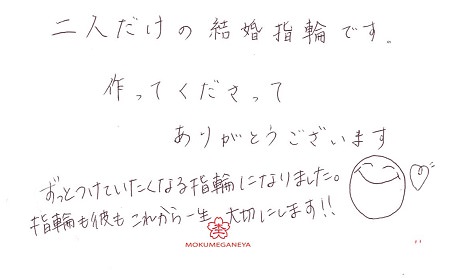 二人だけの結婚指輪です。
作ってくださって
ありがとうございます
ずっとつけていたくなる指輪になりました。
指輪も彼もこれから一生大切にします!!
MOKUMEGANEYA